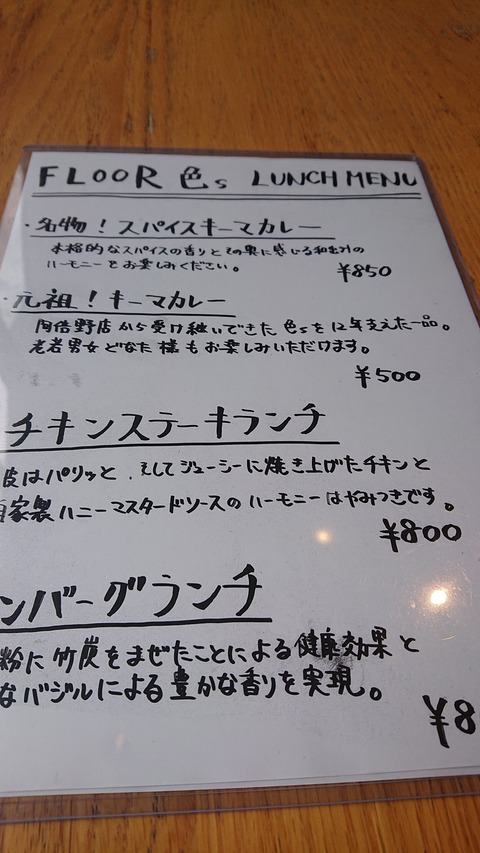 FLOOR 色s LUNCH MENU
・名物！スパイスキーマカレー
本格的なスパイスの香りとその奥に感じる和だしの
ハーモニーをお楽しみください。
¥850
・元祖！キーマカレー
阿倍野店から受け継いできた色sを12年支えた一品。
老若男女どなた様もお楽しみいただけます。
¥500
チキンステーキランチ
皮はパリッと、そしてジューシーに焼き上げたチキンと
自家製ハニーマスタードソースのハーモニーはやみつきです。
¥800
ンバーグランチ
粉に竹炭をまぜたことによる健康効果と
なバジルによる豊かな香りを実現。
¥8